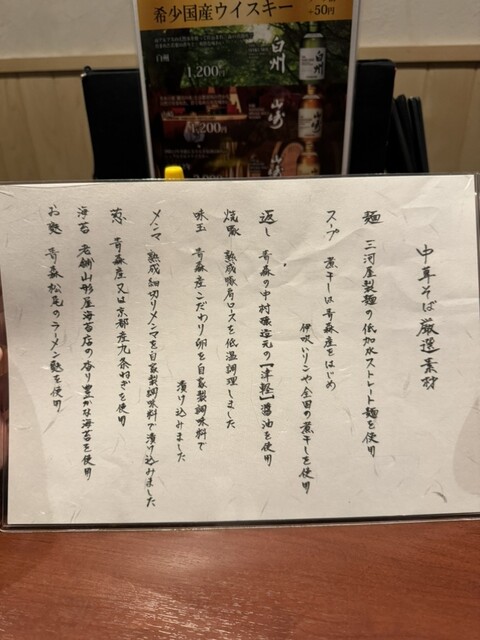 希少国産ウイスキー
+50円
白州
1,200円
白州
山崎
1,200円
中華そば厳選素材
麺 三河屋製麺の低加水ストレート麺を使用
スープ 煮干しは青森産をはじめ
伊吹いりこや全国の煮干しを使用
返し 青森の中村醸造元の【津軽】醤油を使用
焼豚 熟成豚肩ロースを低温調理しました
味玉 青森産こだわり卵を自家製調味料で
漬け込みました
メンマ 熟成細切りメンマを自家製調味料で漬け込みました
葱 青森産又は京都産九条ねぎを使用
海苔 老舗山形屋海苔店の香り豊かな海苔を使用
お麩 青森松尾のラーメン麩を使用